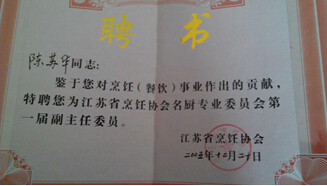 聘书
陈苏华同志:
鉴于您对烹饪（餐饮）事业作出的贡献，
特聘您为江苏省烹饪协会名厨专业委员会第
一届副主任委员。
江苏省烹饪协会
二〇〇五年十二月二十日